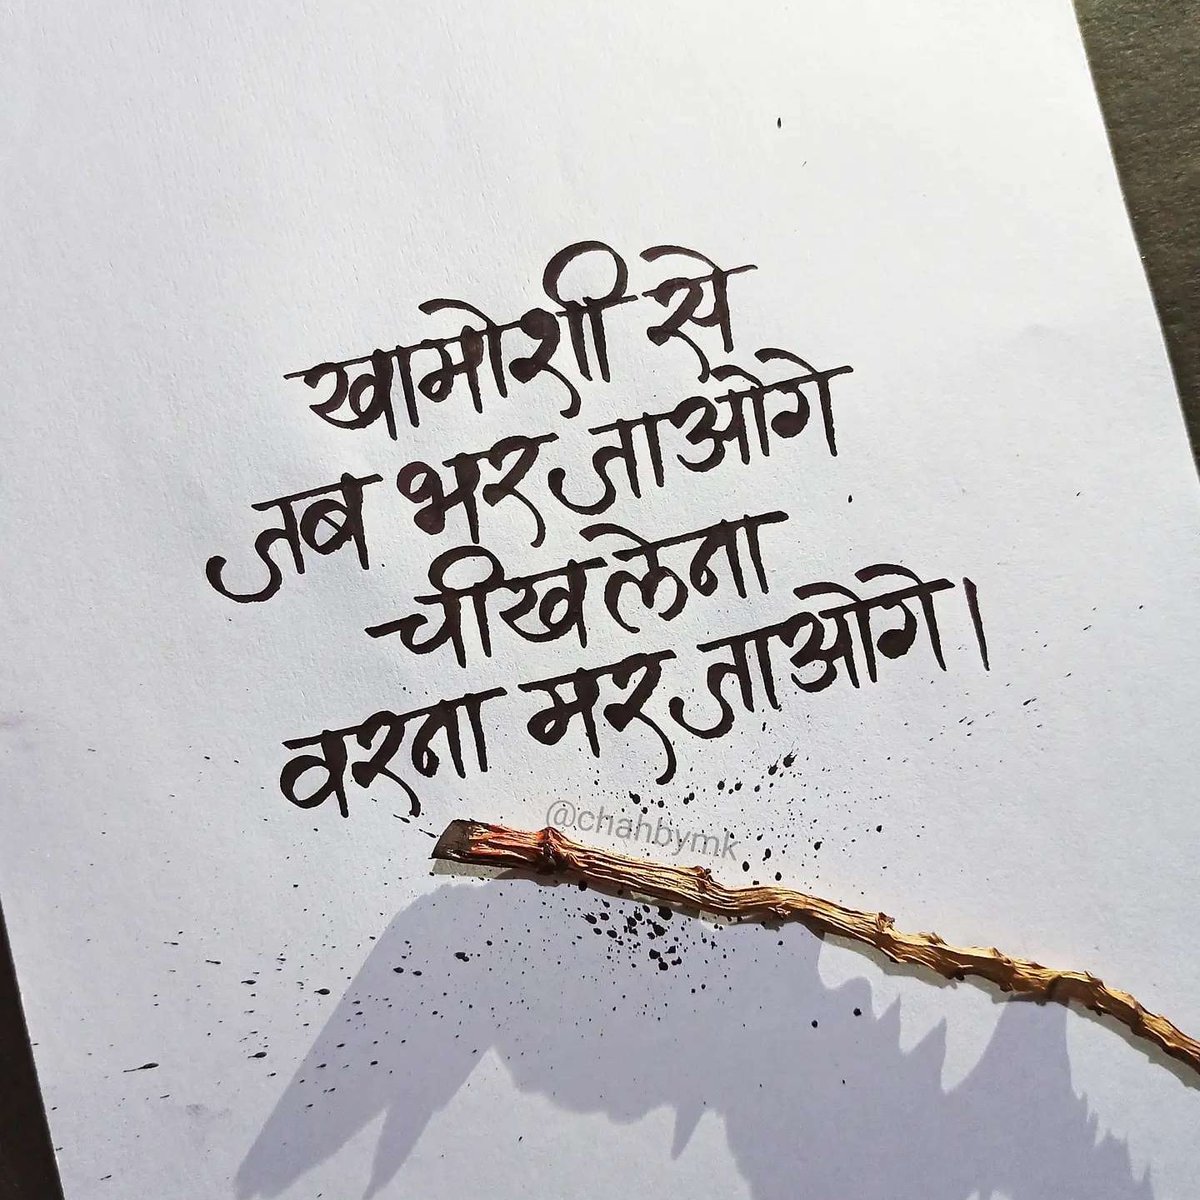 खामोशी से
जब भर जाओगे
चीख लेना
वरना मर जाओगे।
@chahbymk